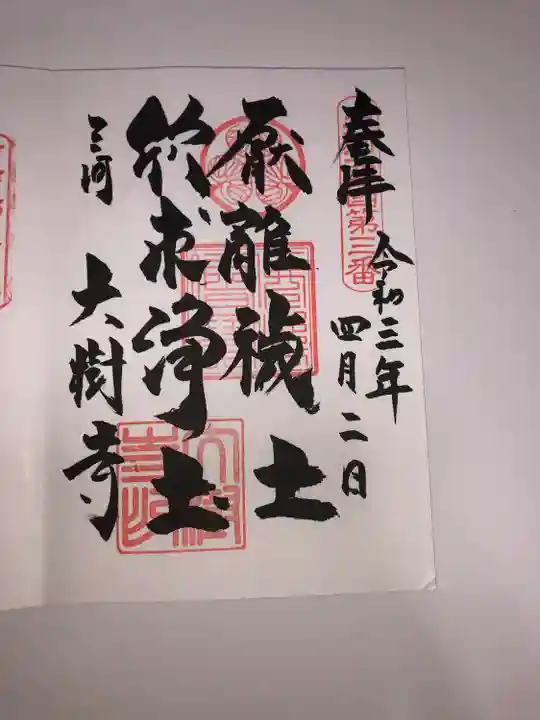 奉拝
令和三年
四月二日
第三番
厭離穢土
欣求浄土
三河
大樹寺